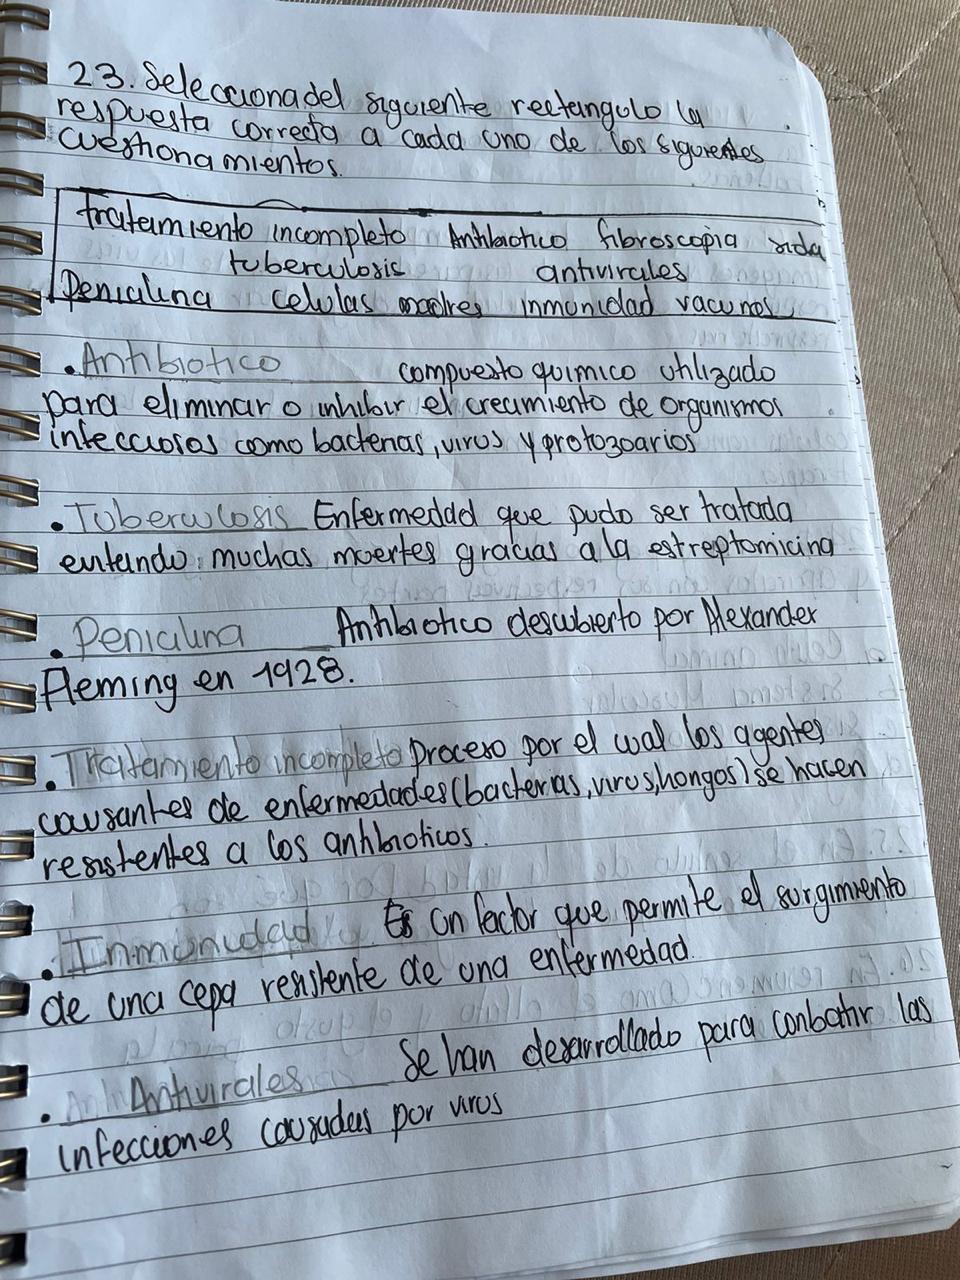 23. Selecciona del siguiente rectangulo la
respuesta correcta a cada uno de los siguientes
cuestionamientos.
tratamiento incompleto Antibiotico fibroscopia sida
tuberculosis antivirales
Penicilina celulas madres inmunidad vacunas
. Antibiotico compuesto quimico utilizado
para eliminar o inhibir el crecimiento de organismos
infecciosos como bacterias, virus y protozoarios
. Tuberculosis Enfermedad que pudo ser tratada
evitando muchas muertes gracias a la estreptomicina
. Penicilina Antibiotico descubierto por Alexander
Fleming en 1928.
. Tratamiento incompleto Proceso por el cual los agentes
causantes de enfermedades (bacterias, virus, hongos) se hacen
resistentes a los antibioticos.
. Inmunidad Es un factor que permite el surgimiento
de una cepa resistente de una enfermedad.
. Antivirales Se han desarrollado para conbatir las
infecciones causadas por virus